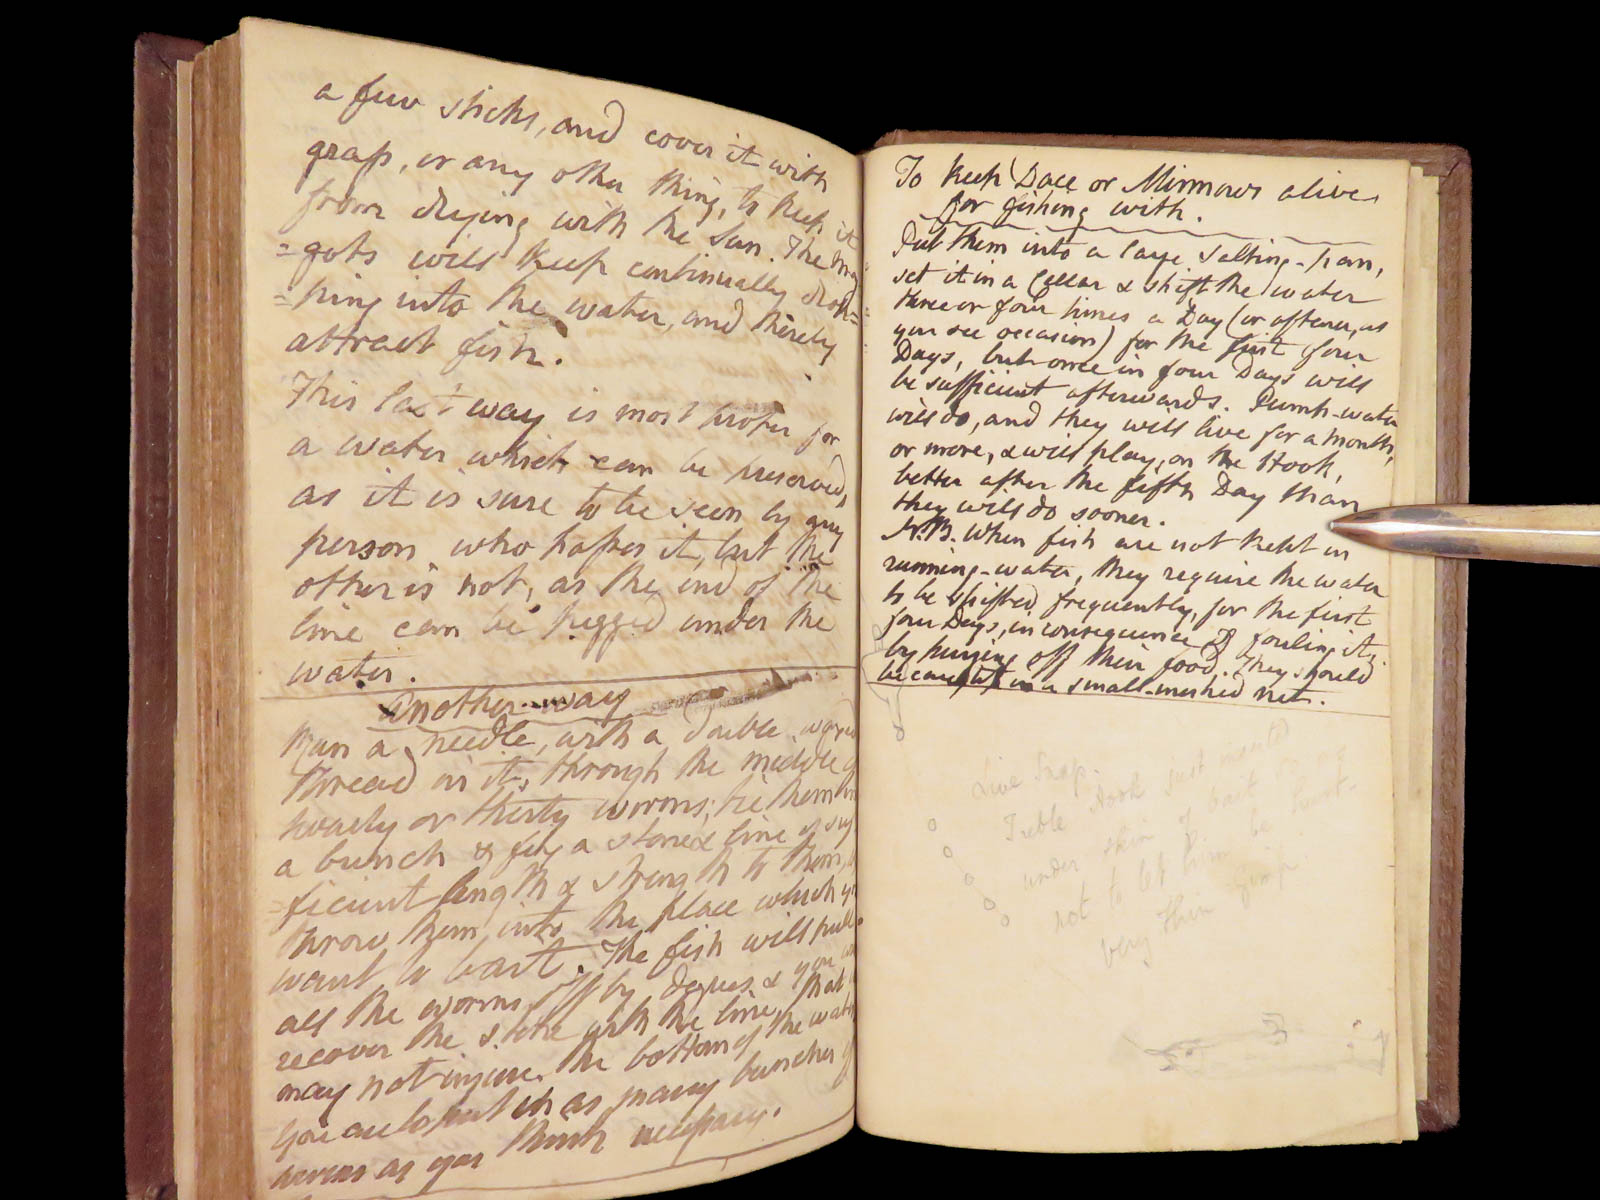 a few sticks, and cover it with
grass, or any other thing, to keep it
from drying with the Sun. The mag
=gots will keep continually drop=
=ping into the water, and thereby
attract fish.
This last way is most proper for
a water which can be preserved,
as it is sure to be seen by any
person who passes it, but the
other is not, as the end of the
line can be pegged under the
water.
Another way
Run a needle, with a double waxed
thread in it, through the middle of
twenty or thirty worms; tie them in
a bunch & fix a stone & line of suf
=ficient length & strength to them, &
throw them into the place which you
want to bait. The fish will pull
all the worms off by degrees & you can
recover the stone with the line, that it
may not injure the bottom of the water
You are to put in as many bunches of
worms as you think necessary.
To keep Dace or Minnows alive
for fishing with.
Put them into a large Salting-pan,
set it in a Cellar & shift the water
three or four times a Day (or oftener, as
you see occasion) for the first four
Days, but once in four Days will
be sufficient afterwards. Pump-water
will do, and they will live for a month,
or more, & will play, on the Hook,
better after the fifth Day than
they will do sooner.
N.B. When fish are not kept in
running-water, they require the water
to be shifted frequently, for the first
four Days, in consequence of fouling it,
by purging off their food. They should
be caught in a small-meshed net.
Live Snap.
Treble Hook just inserted
under skin of bait so as
not to let him be hurt-
very thin Gimp